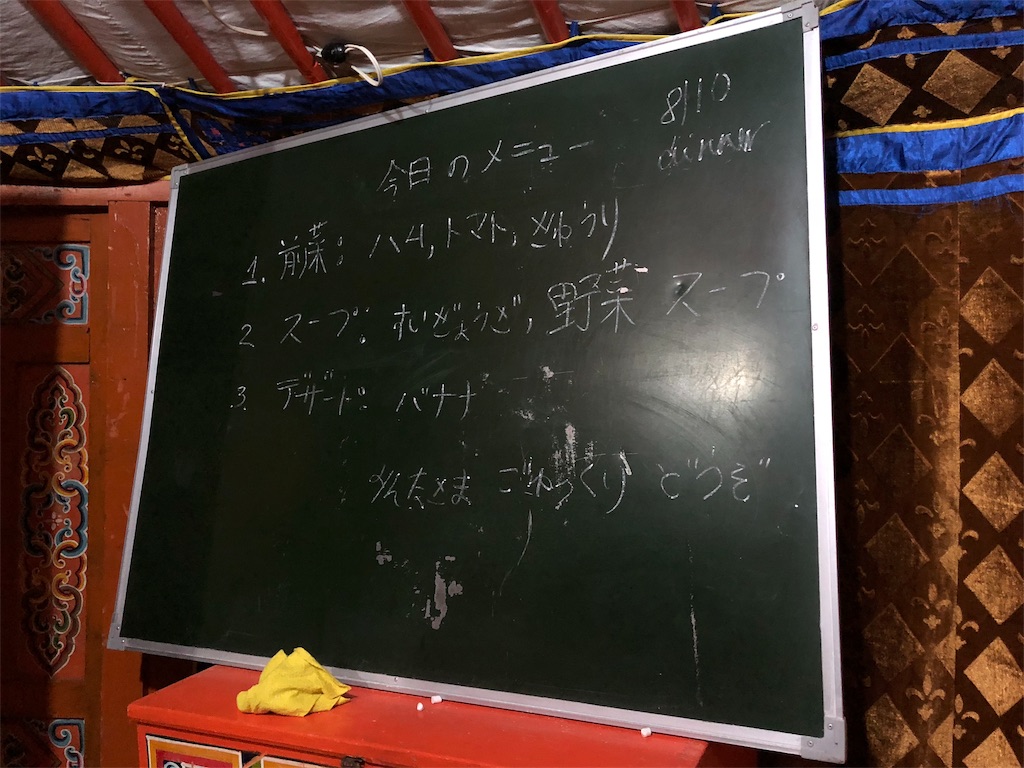 8/10
dinner
今日のメニュー
1. 前菜: ハム, トマト, きゅうり
2 スープ: すいぎょうざ, 野菜 スープ
3. デザート: バナナ
みなさま ごゆっくり どうぞ